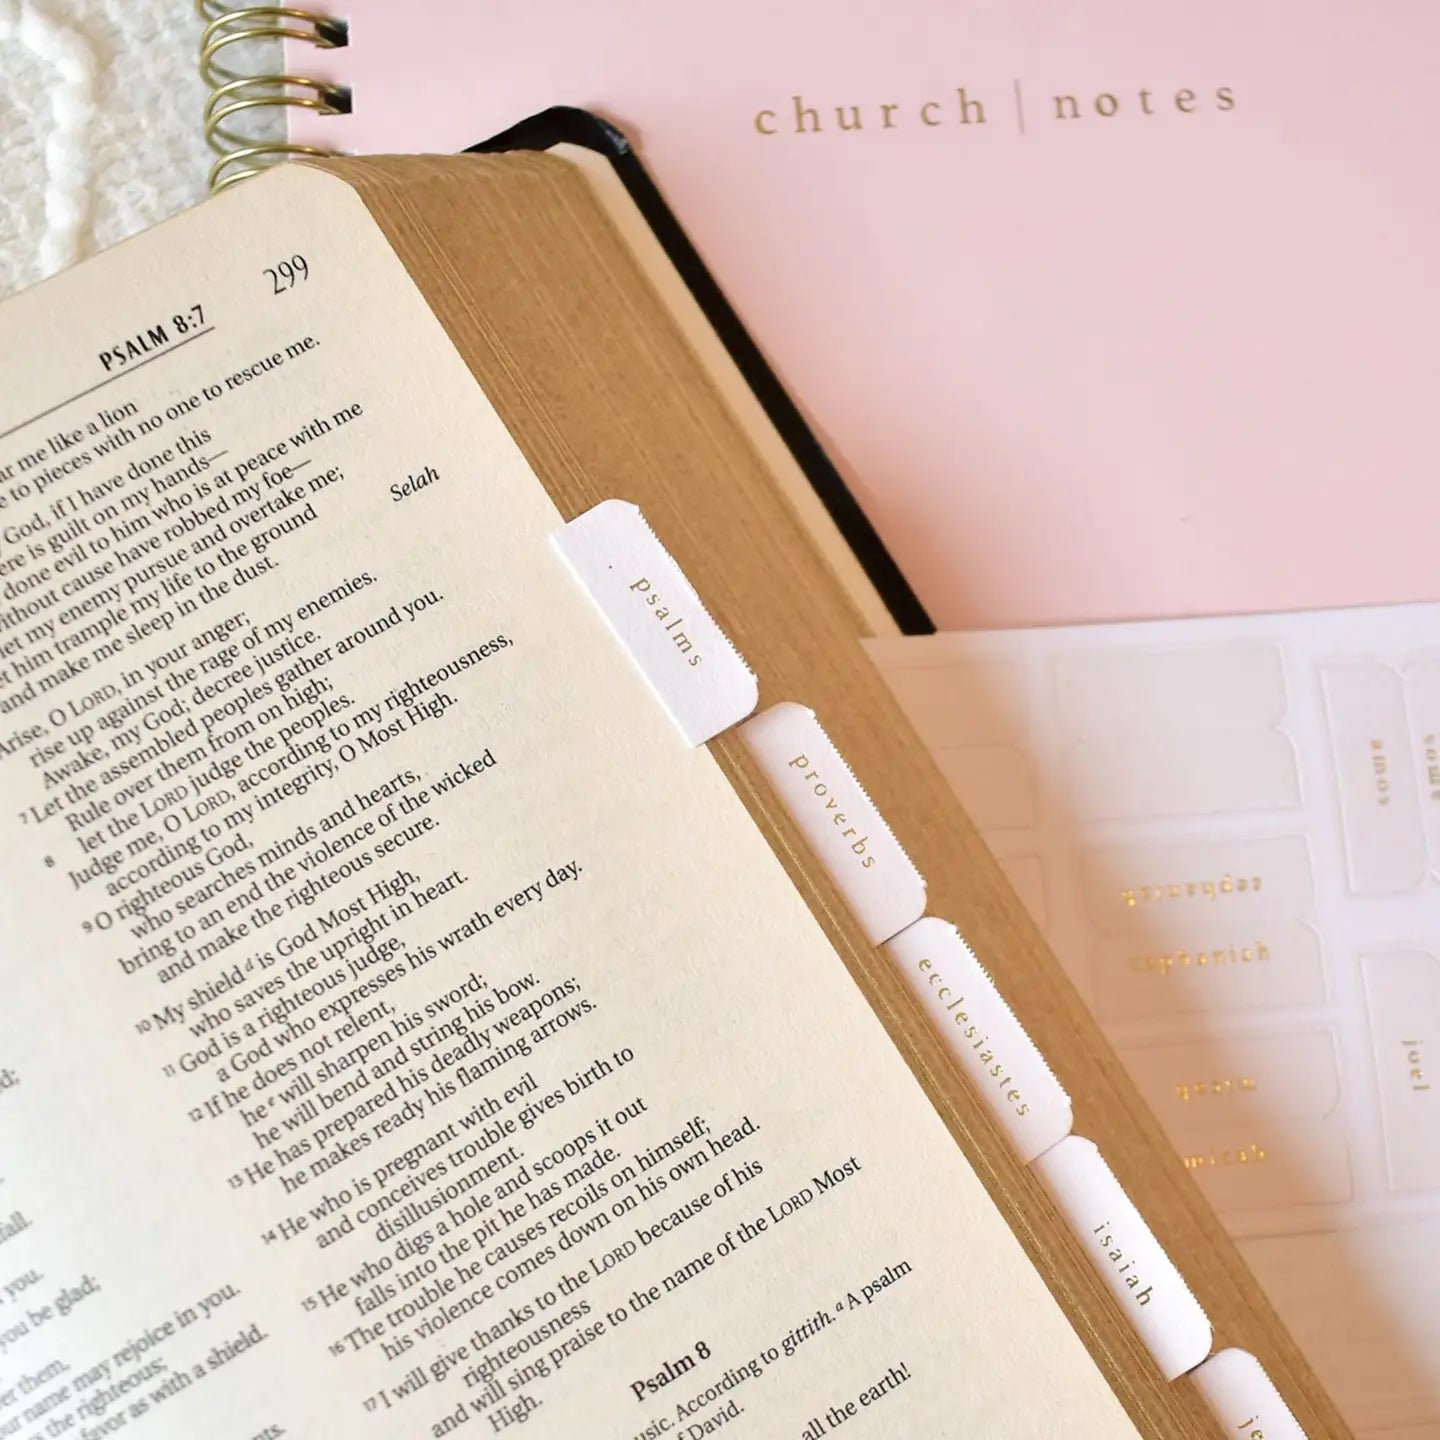 church | notes
299
PSALM 8:7
me like a lion
to pieces with no one to rescue me.
God, if I have done this
is guilt on my hands—
done evil to him who is at peace with me
without cause have robbed my foe—
let my enemy pursue and overtake me;
him trample my life to the ground
and make me sleep in the dust.
Selah
Arise, O LORD, in your anger;
rise up against the rage of my enemies.
Awake, my God; decree justice.
7 Let the assembled peoples gather around you.
Rule over them from on high;
8 let the LORD judge the peoples.
Judge me, O LORD, according to my righteousness,
according to my integrity, O Most High.
9 O righteous God,
who searches minds and hearts,
bring to an end the violence of the wicked
and make the righteous secure.
10 My shield d is God Most High,
who saves the upright in heart.
11 God is a righteous judge,
a God who expresses his wrath every day.
12 If he does not relent,
he e will sharpen his sword;
he will bend and string his bow.
13 He has prepared his deadly weapons;
he makes ready his flaming arrows.
14 He who is pregnant with evil
and conceives trouble gives birth to
disillusionment.
15 He who digs a hole and scoops it out
falls into the pit he has made.
16 The trouble he causes recoils on himself;
his violence comes down on his own head.
17 I will give thanks to the LORD because of his
righteousness
and will sing praise to the name of the LORD Most
High.
Psalm 8
According to gittith. a A psalm
of David.
all the earth!
you.
you be glad;
them.
your name may rejoice in you.
the righteous;
favor as with a shield.
psalms
proverbs
ecclesiastes
isaiah
je
amos
zephaniah
joel
micah